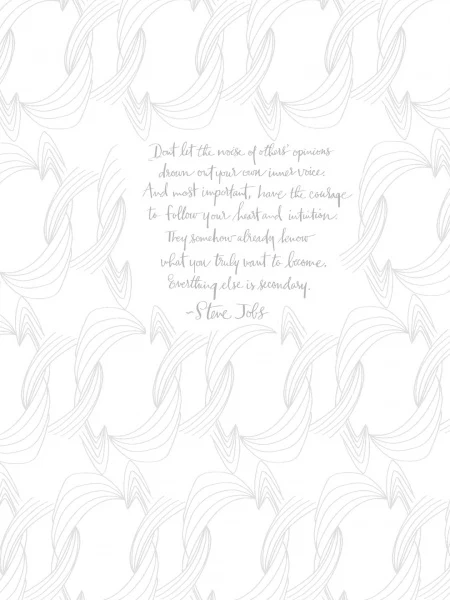 Don't let the noise of others' opinions
drown out your own inner voice.
And most important, have the courage
to follow your heart and intuition.
They somehow already know
what you truly want to become.
Everthing else is secondary.
-Steve Jobs